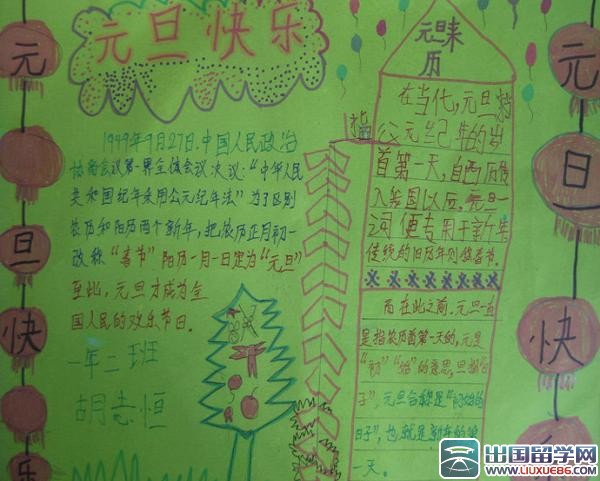 元旦快乐
1949年9月27日,中国人民政治
协商会议第一界全体会议决议:“中华人民
共和国纪年采用公元纪年法”为了区别
农历和阳历两个新年,把农历正月初一
改称“春节”阳历一月一日定为“元旦”
至此,元旦才成为全
国人民的欢乐节日.
一年二班
胡志恒
元旦来
历
在当代,元旦指
公元纪年的岁
首第一天,自西历传
入我国以后,元旦一
词便专用于新年
传统的旧历年则做春节.
而在此之前,元旦一直
是指农历首第一天的,元是
“初”“始”的意思,旦指“日
子”,元旦合称是“初始的
日子”,也就是新年的第
一天.
元
旦
快
乐
元
旦
快
乐
出国留学网
WWW.LIUXUE86.COM